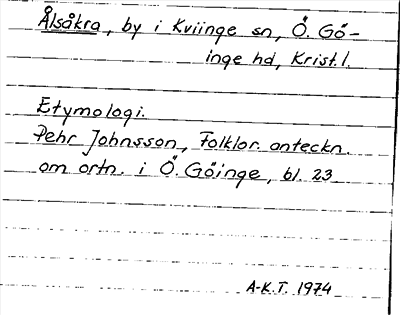 Ålsåkra, by i Kviinge sn, Ö. Gö-
inge hd, Krist. l.
Etymologi.
Pehr Johnsson, Folklor. anteckn.
om ortn. i Ö. Göinge, bl. 23
A-K.T. 1974